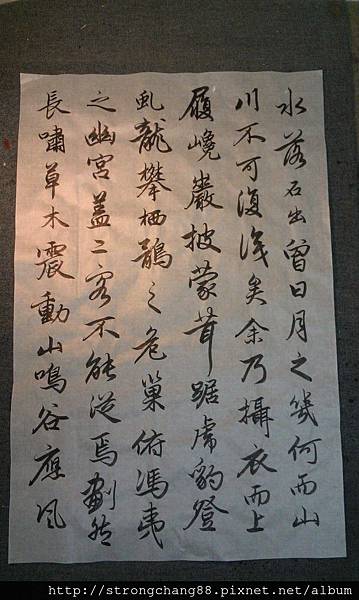 水落石出曾日月之幾何而山
川不可復識矣余乃攝衣而上
履巉巖披蒙茸踞虎豹登
虬龍攀栖鶻之危巢俯馮夷
之幽宮蓋二客不能從焉劃然
長嘯草木震動山鳴谷應風
http://strongchang88.pixnet.net/album